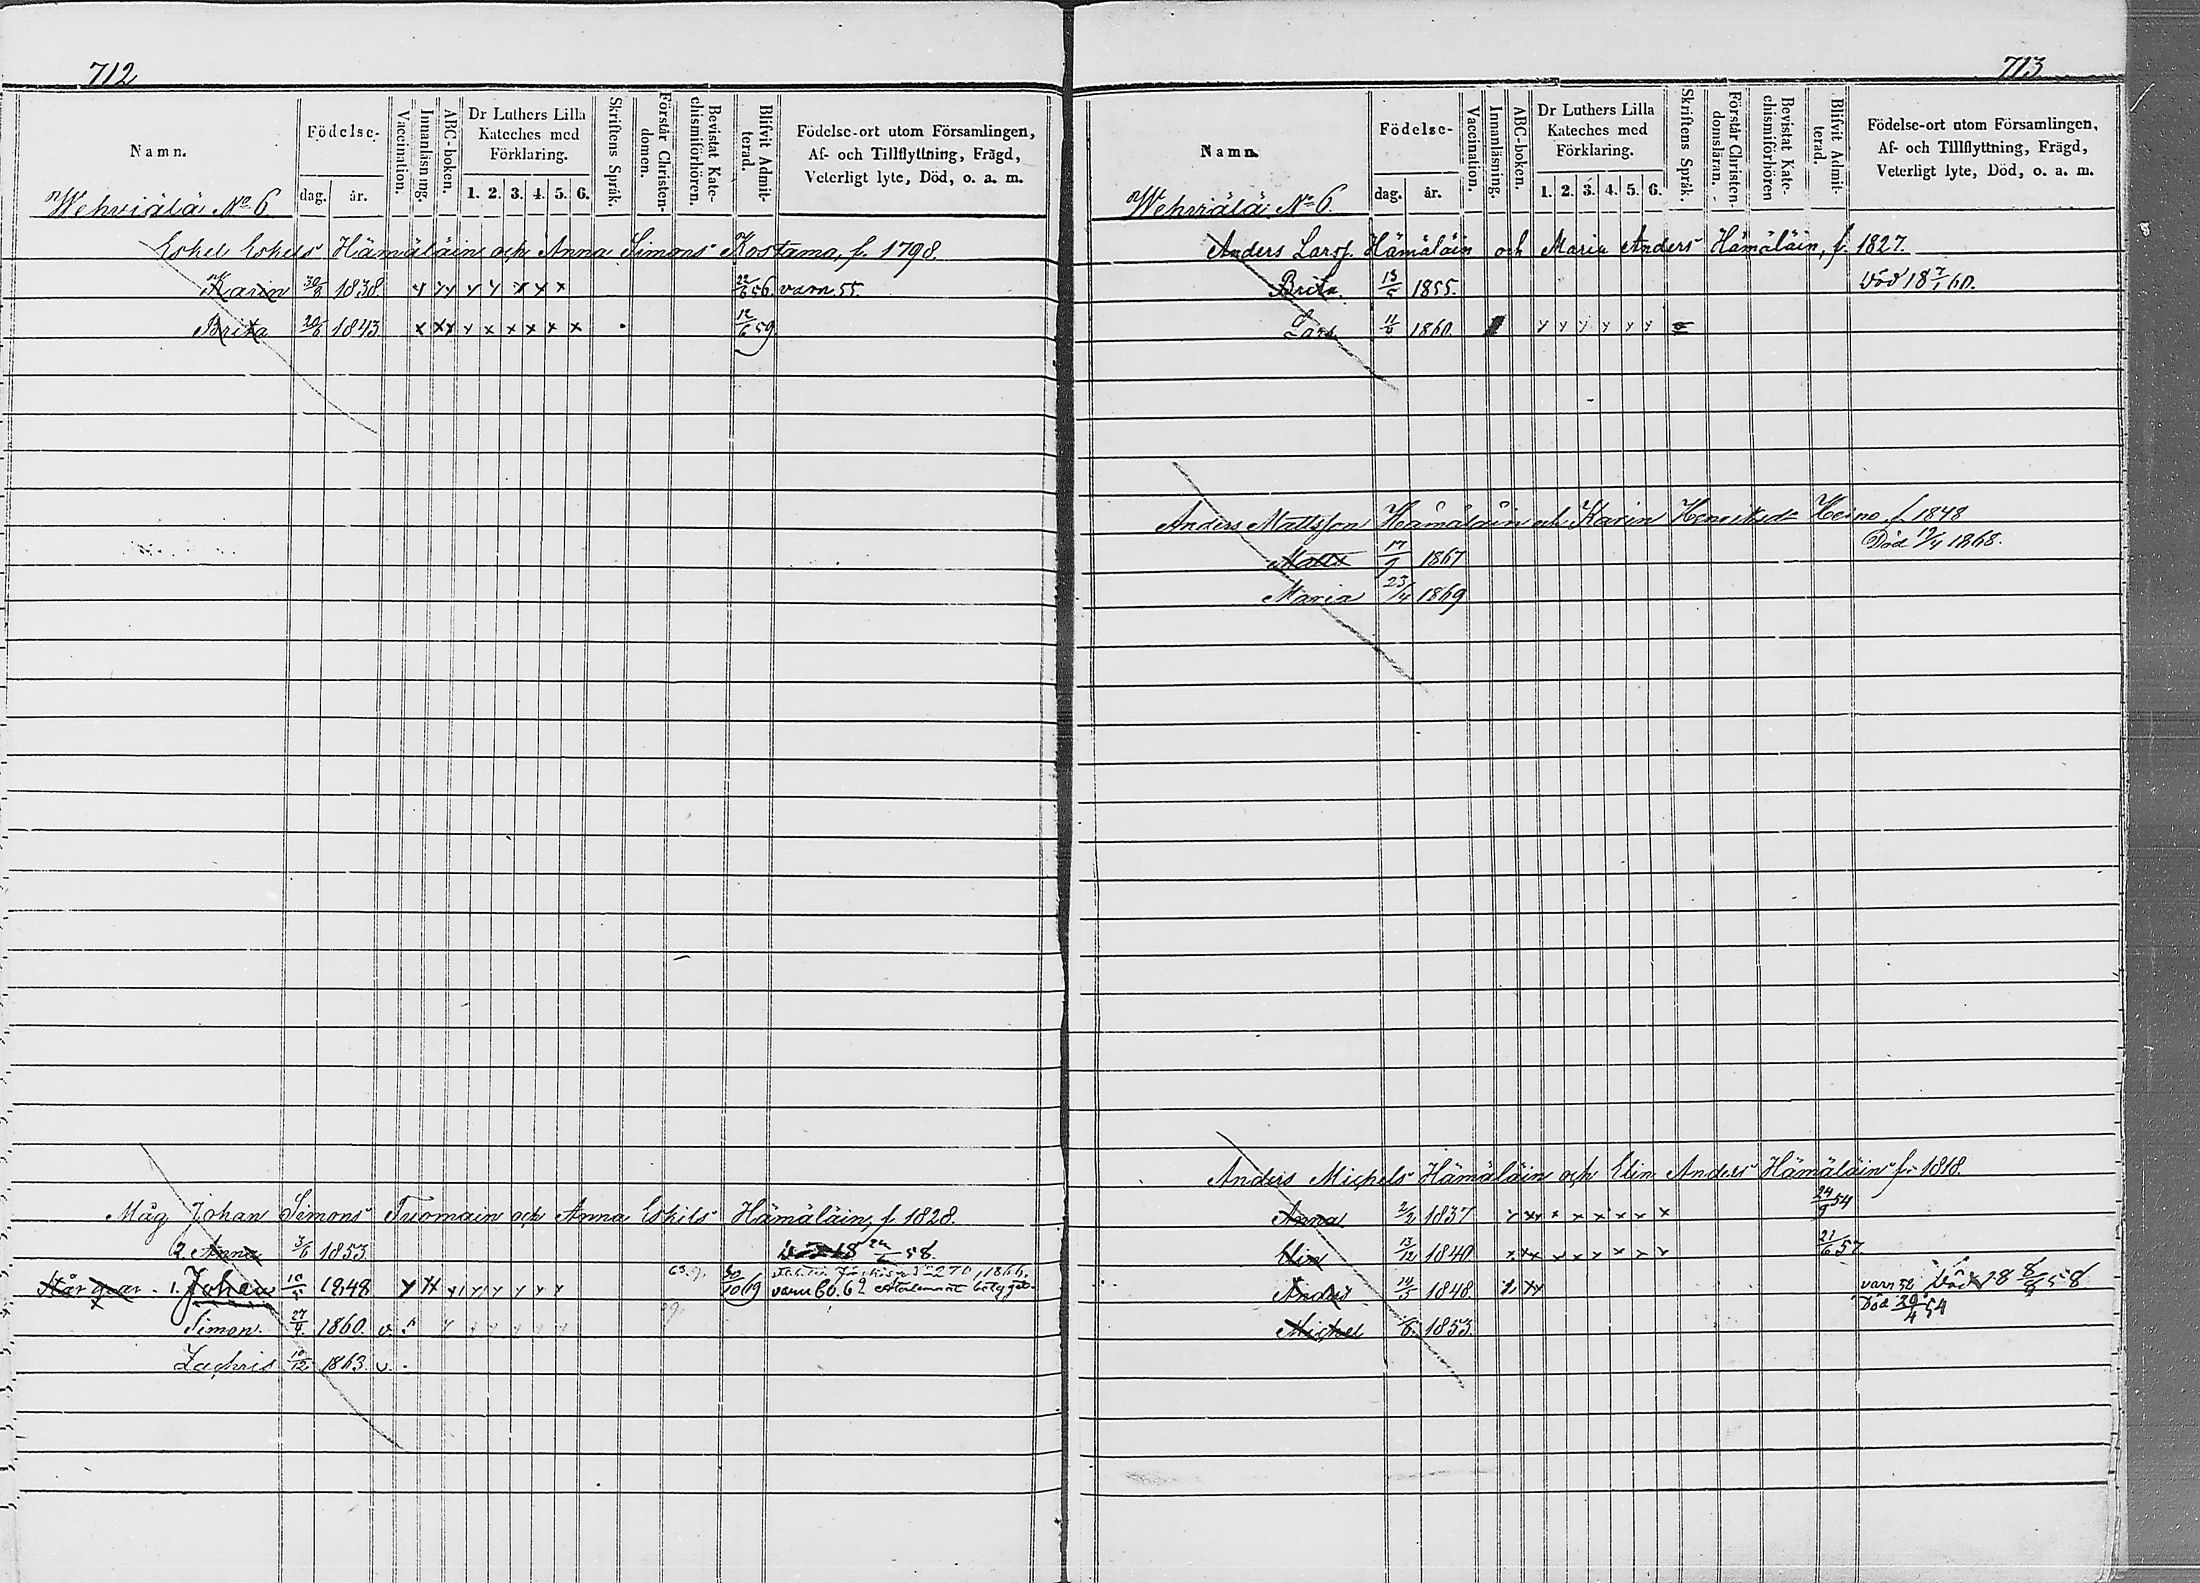 712
Namn.
Födelse-
dag. år.
Vaccination.
Innanläsning.
ABC-boken.
Dr Luthers Lilla
Kateches med
Förklaring.
1. 2. 3. 4. 5. 6.
Skriftens Språk.
Förstår Christen-
domen.
Bevistat Kate-
chismiförhören.
Blifvit Admit-
terad.
Födelse-ort utom Församlingen,
Af- och Tillflyttning, Frägd,
Veterligt lyte, Död, o. a. m.
Wehviälä No 6.
Eskel Eskels Hämäläin och Anna Simons Kostamo, f. 1798.
Karin 30/8 1838. 22/6 56. varn 55.
Brita 20/6 1843. x x x x x x x x x 12/6 59.
Måg Johan Simons Tuomain och Anna Eskils Hämäläin, f. 1828.
2. Anna 3/6 1853 58.
1. Johan 10/5 1848 30/10 69 varn 60. 62
Simon. 27/4 1860. v.
Zachris 10/12 1863. v.
713
Namn.
Födelse-
dag. år.
Vaccination.
Innanläsning.
ABC-boken.
Dr Luthers Lilla
Kateches med
Förklaring.
1. 2. 3. 4. 5. 6.
Skriftens Språk.
Förstår Christen-
domsläran.
Bevistat Kate-
chismiförhören
Blifvit Admit-
terad.
Födelse-ort utom Församlingen,
Af- och Tillflyttning, Frägd,
Veterligt lyte, Död, o. a. m.
Wehviälä No 6.
Anders Larss. Hämäläin och Maria Anders Hämäläin, f. 1827.
Brita. 13/5 1855. Död 18 7/1 60.
Lars 11/9 1860.
Anders Mattsson Hämäläin och Karin Henriksdr Heino f. 1848
Matts 17/9 1867 Död 19/4 1868.
Maria 23/4 1869
Anders Michels Hämäläin och Elin Anders Hämäläin f. 1818.
Anna 2/2 1837 24/9 54
Elin 13/12 1840 21/6 57.
Anders 14/5 1848 varn 52 Död 18 8/9 58
Michel /6 1853. Död 29/4 54